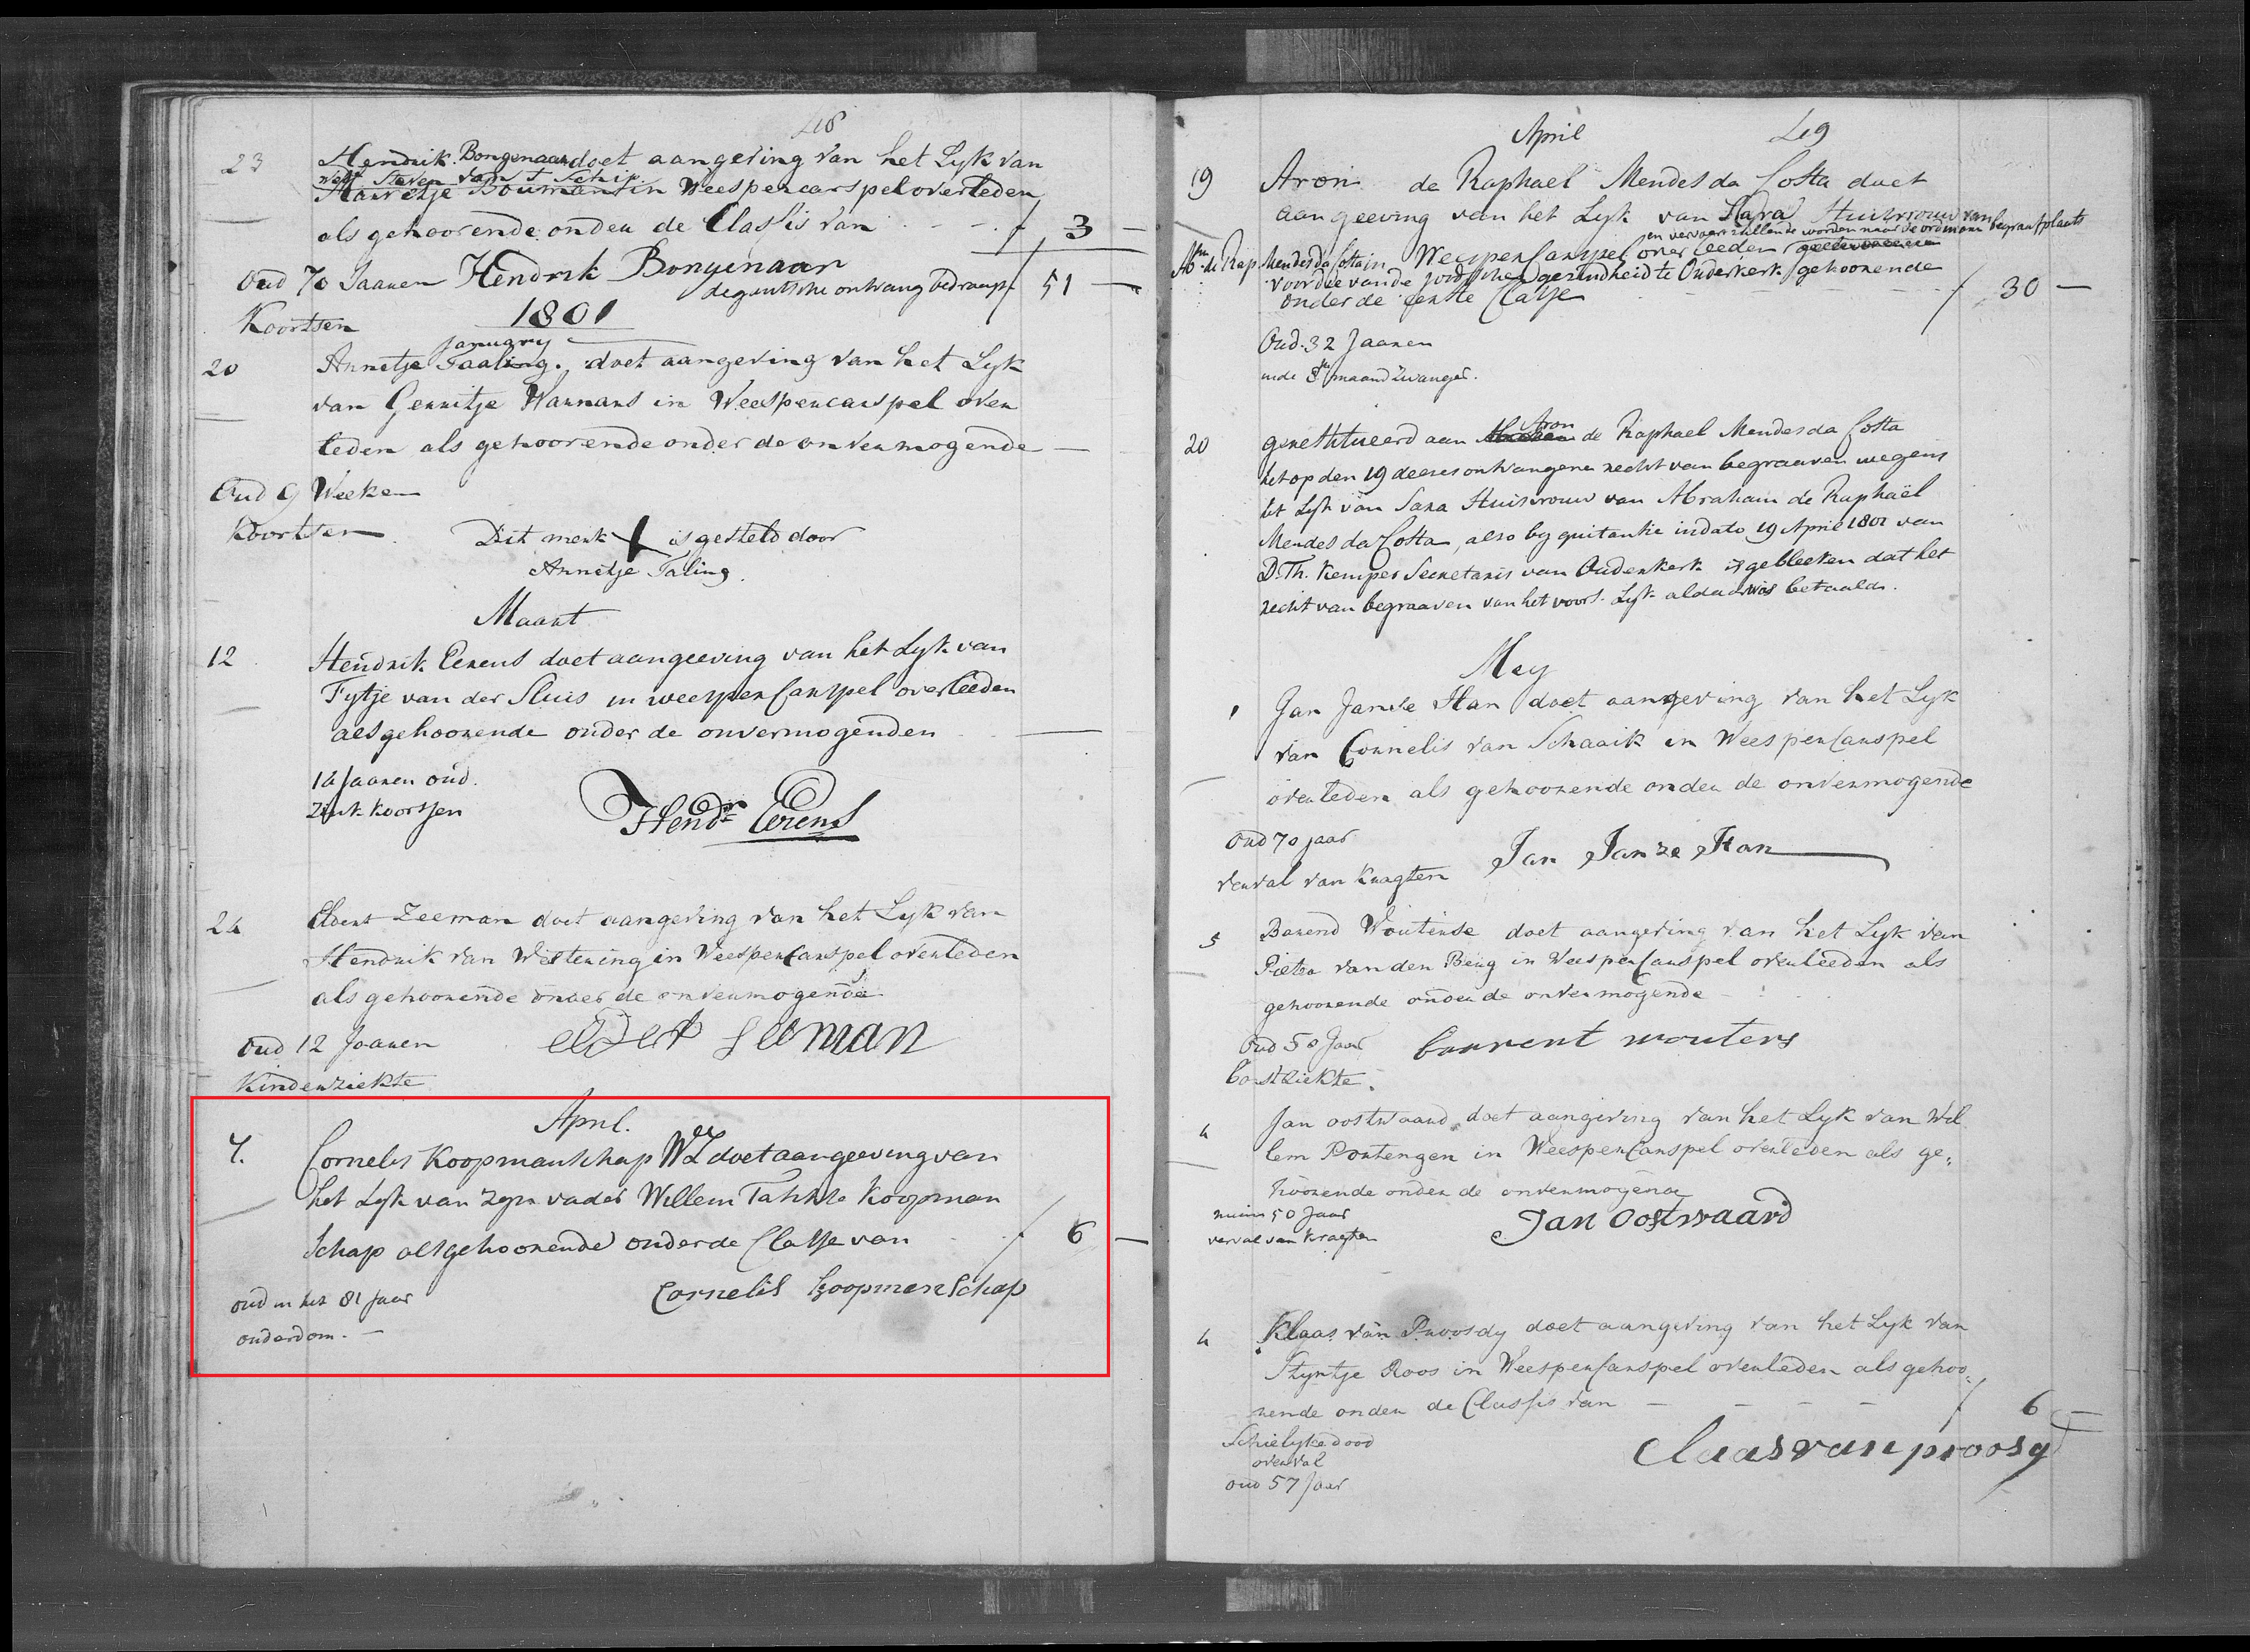 48
23 Hendrik Bongenaar doet aangeving van het Lyk van
wede Steven van t Schip
Marretje Boumans in Weespercarspel overleden
als gehoorende onder de Classis van f 3 —
Oud 70 Jaaren Hendrik Bongenaar
de gantsche ontvang bedraagt f 51 —
Koortsen
1801
January
20 Annetje Taaling doet aangeving van het Lyk
van Gerritje Harmans in Weespercarspel over
leden als gehoorende onder de onvermogende —
Oud 9 Weeken
Koortsen
Dit merk X is gesteld door
Annetje Taling.
Maart
12 Hendrik Eerens doet aangeeving van het Lyk van
Fytje van der Sluis in weesperCarspel overleeden
als gehoorende onder de onvermogenden —
Jaaren oud.
Zink koortsen
Hendr Eerens
24 Eldert Zeeman doet aangeving van het Lyk van
Hendrik van Westering in WeesperCarspel overleden
als gehoorende onder de onvermogende
Oud 12 Jaaren
eldert seeman
Kinderziekte
April.
7. Cornelis Koopmanschap WZ doet aangeeving van
het Lyk van zyn vader Willem Koopman
Schap als gehoorende onder de Classe van f 6 —
oud in het 81 Jaar
Cornelis KoopmanSchap
ouderdom. —
April 49
19 Aron de Raphael Mendes da Costa doet
aangeeving van het Lyk van Sara Huisvrouw van
Abm de Rap. Mendes da Costa in WeesperCarspel overleeden
en vervoert zullende worden naar de ordinaire begraafplaats
voor die van de Joodsche gezindheid te Ouderkerk gehoorende
onder de eerste Classe f 30 —
Oud 32 Jaaren
in de 8ste maand zwanger.
20 gerestitueerd aan Aron de Raphael Mendes da Costa
het op den 19 deezes ontvangene recht van begraaven wegens
het Lyk van Sara Huisvrouw van Abraham de Raphaël
Mendes da Costa, also by quitantie in dato 19 April 1801 van
D. Th. Kemper Secretaris van Ouderkerk is gebleeken dat het
recht van begraaven van het voors. Lyk aldaar was betaald.
Mey
1 Jan Janse Han doet aangeving van het Lyk
van Cornelis van Schaaik in WeesperCarspel
overleden als gehoorende onder de onvermogende
Oud 70 jaar
Jan Janze Han
verval van Kragten
5 Barend Wouterse doet aangeving van het Lyk van
Pieter van den Berg in WeesperCarspel overleeden als
gehoorende onder de onvermogende
Oud 50 Jaar
barrent wouters
borstziekte.
4 Jan oostwaard doet aangeving van het Lyk van Wil
lem in WeesperCarspel overleden als ge:
hoorende onder de onvermogende
ruim 50 Jaar
Jan Oostwaard
verval van kragten
4 Klaas van Proosdy doet aangeving van het Lyk van
Styntje Roos in WeesperCarspel overleden als gehoo
rende onder de Classis van — — — — f 6 —
Schielyke dood
overval
Claas van proosy
oud 57 Jaar